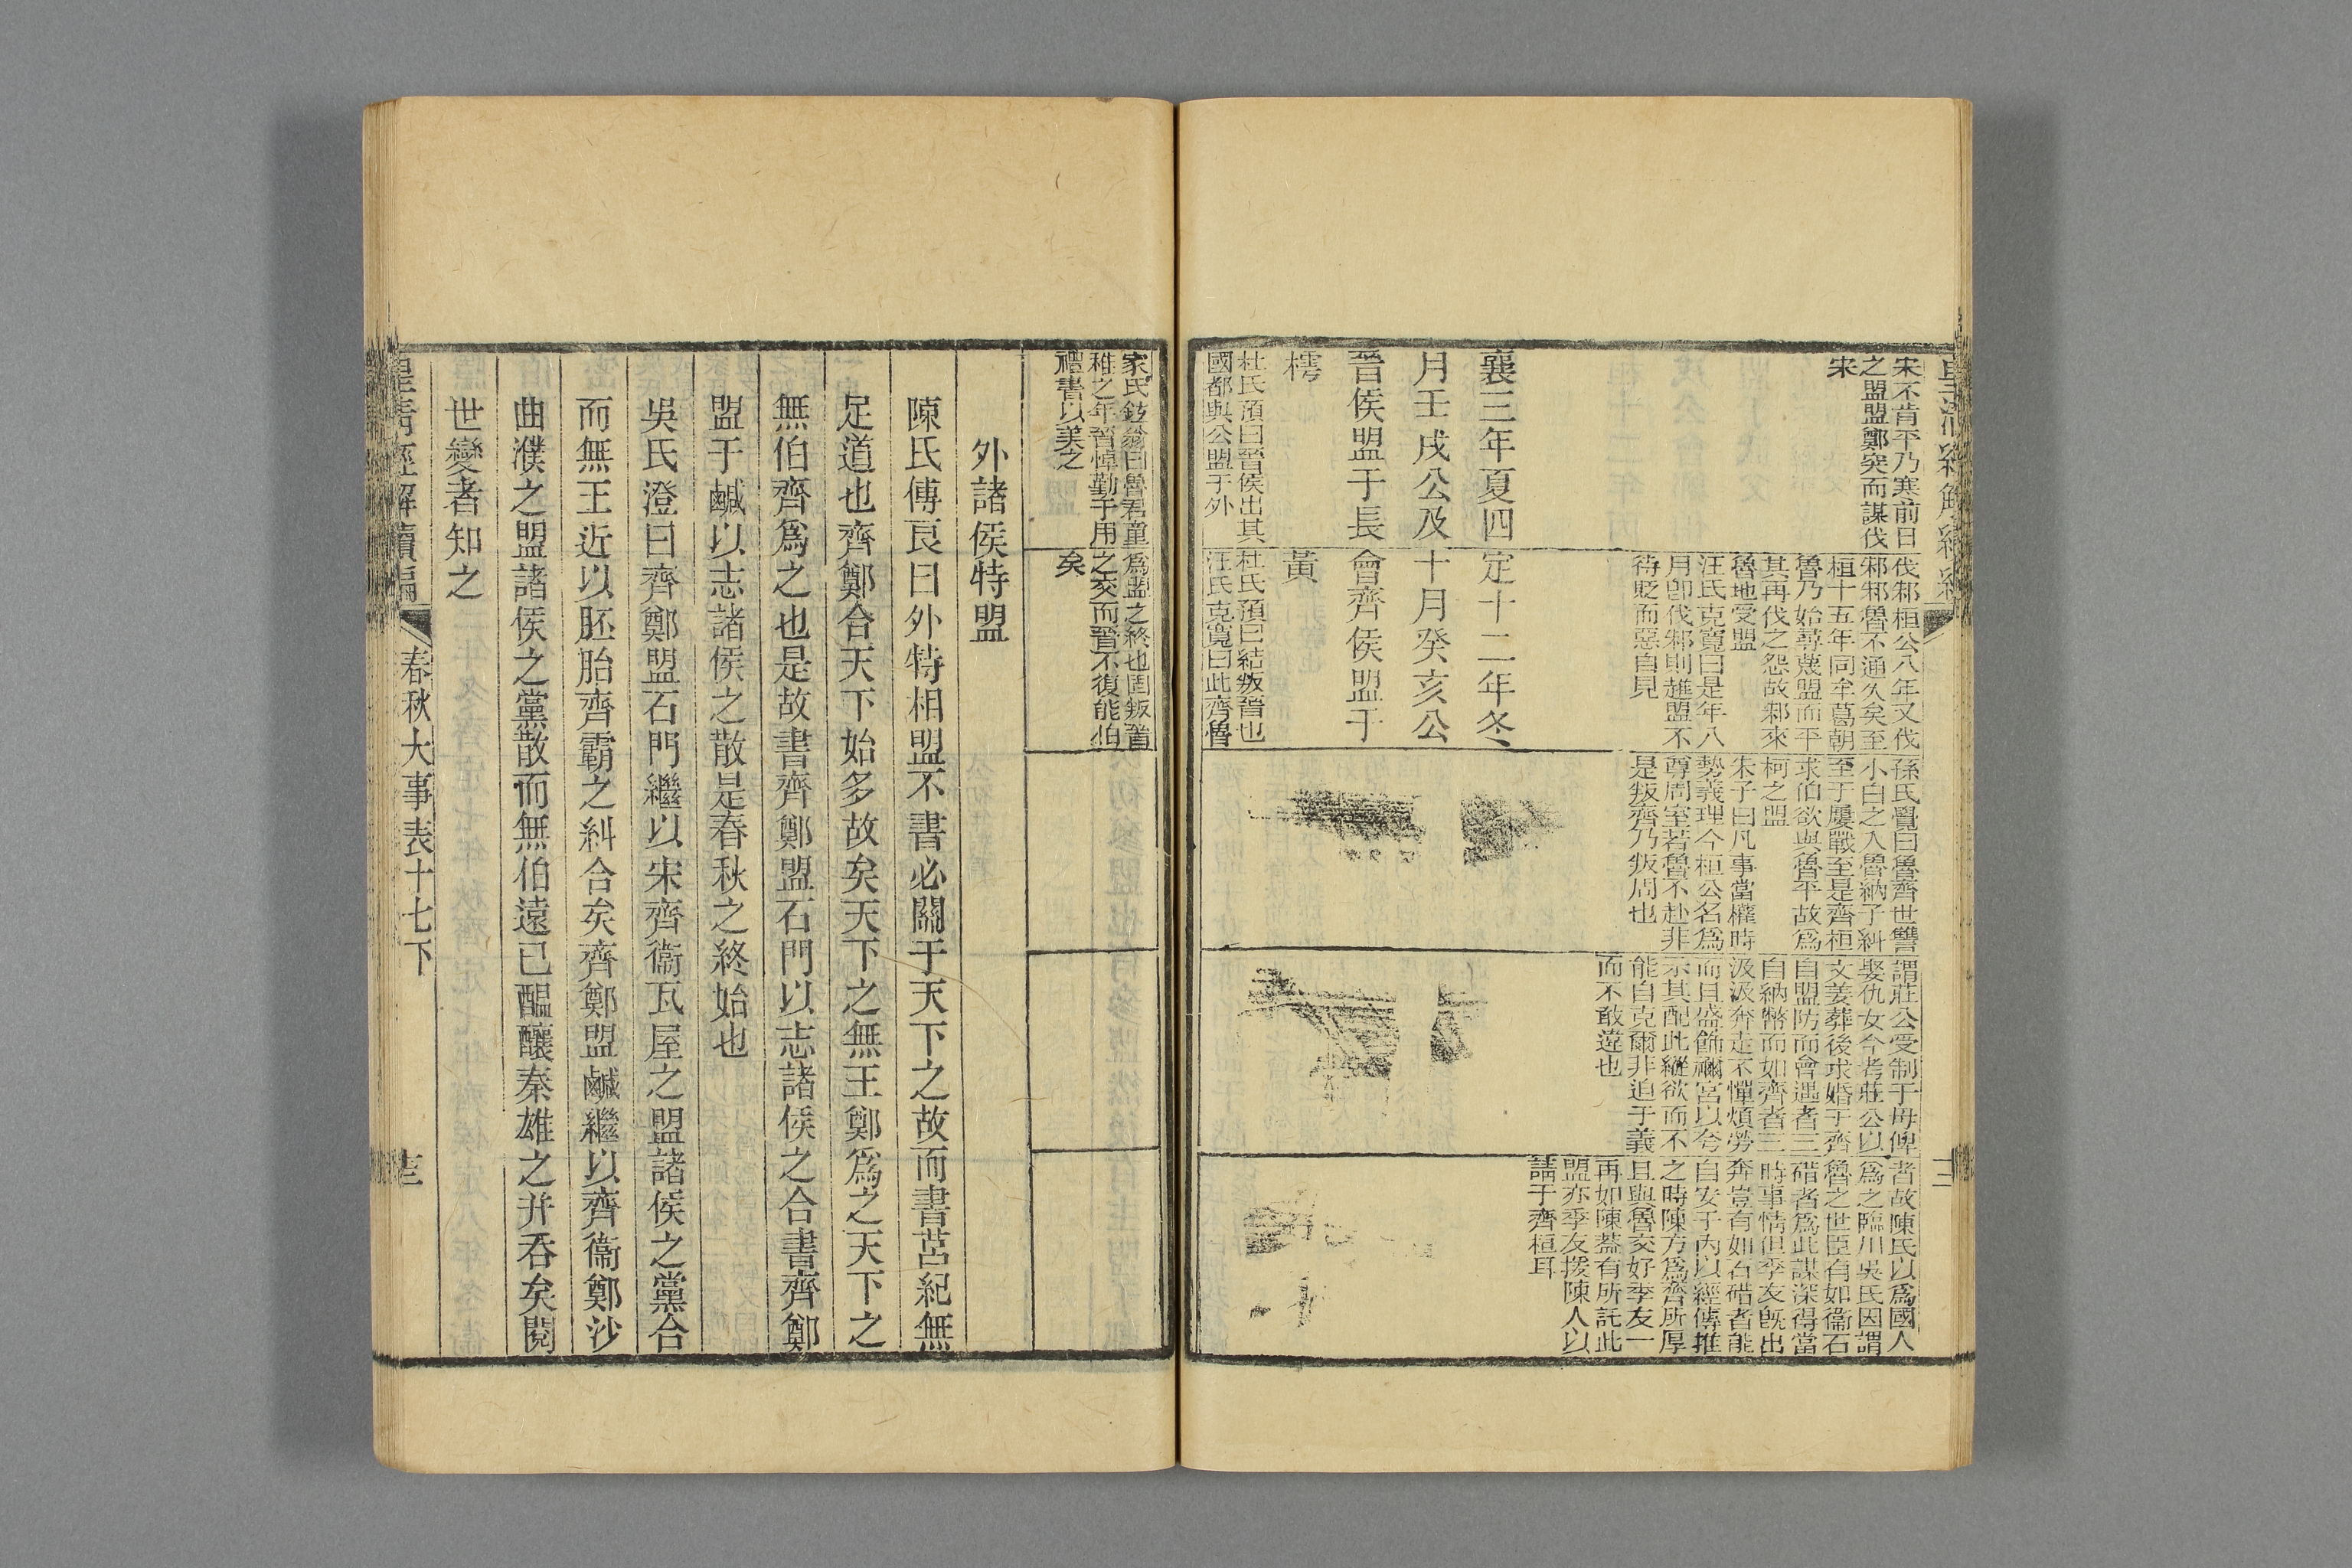 宋不肯平乃寒前日
之盟盟鄭突而謀伐
宋
襄三年夏四
月壬戌公及
晉侯盟于長
樗
杜氏預曰晉侯出其
國都與公盟于外
伐邾桓公八年又伐
邾邾魯不通久矣至
桓十五年同牟葛朝
魯乃始尋蔑盟而平
其再伐之怨故邾來
魯地受盟
汪氏克寬曰是年八
月卽伐邾則趡盟不
待貶而惡自見
定十二年冬
十月癸亥公
會齊侯盟于
黃
杜氏預曰結叛晉也
汪氏克寬曰此齊魯
孫氏覺曰魯齊世讐
小白之入魯納子糾
至于屢戰至是齊桓
求伯欲與魯平故爲
柯之盟
朱子曰凡事當權時
勢義理今桓公名爲
尊周室若魯不赴非
是叛齊乃叛周也
謂莊公受制于母俾
娶仇女今考莊公以
文姜葬後求婚于齊
自盟防而會遇者三
自納幣而如齊者三
汲汲奔走不憚煩勞
而且盛飾禰宮以夸
示其配此縱欲而不
能自克爾非迫于義
而不敢違也
者故陳氏以爲國人
爲之臨川吳氏因謂
魯之世臣有如衞石
碏者爲此謀深得當
時事情但季友旣出
奔豈有如石碏者能
自安于內以經傳推
之時陳方爲齊所厚
且與魯交好季友一
再如陳蓋有所託此
盟亦季友援陳人以
請于齊桓耳
家氏鉉翁曰魯君童
稚之年晉悼勤于用
禮書以美之
爲盟之終也固叛晉
之交而晉不復能伯
矣
外諸侯特盟
陳氏傅良曰外特相盟不書必關于天下之故而書莒紀無
足道也齊鄭合天下始多故矣天下之無王鄭爲之天下之
無伯齊爲之也是故書齊鄭盟石門以志諸侯之合書齊鄭
盟于鹹以志諸侯之散是春秋之終始也
吳氏澄曰齊鄭盟石門繼以宋齊衞瓦屋之盟諸侯之黨合
而無王近以胚胎齊霸之糾合矣齊鄭盟鹹繼以齊衞鄭沙
曲濮之盟諸侯之黨散而無伯遠已醞釀秦雄之幷吞矣閱
世變者知之
皇清經解續編
春秋大事表十七下